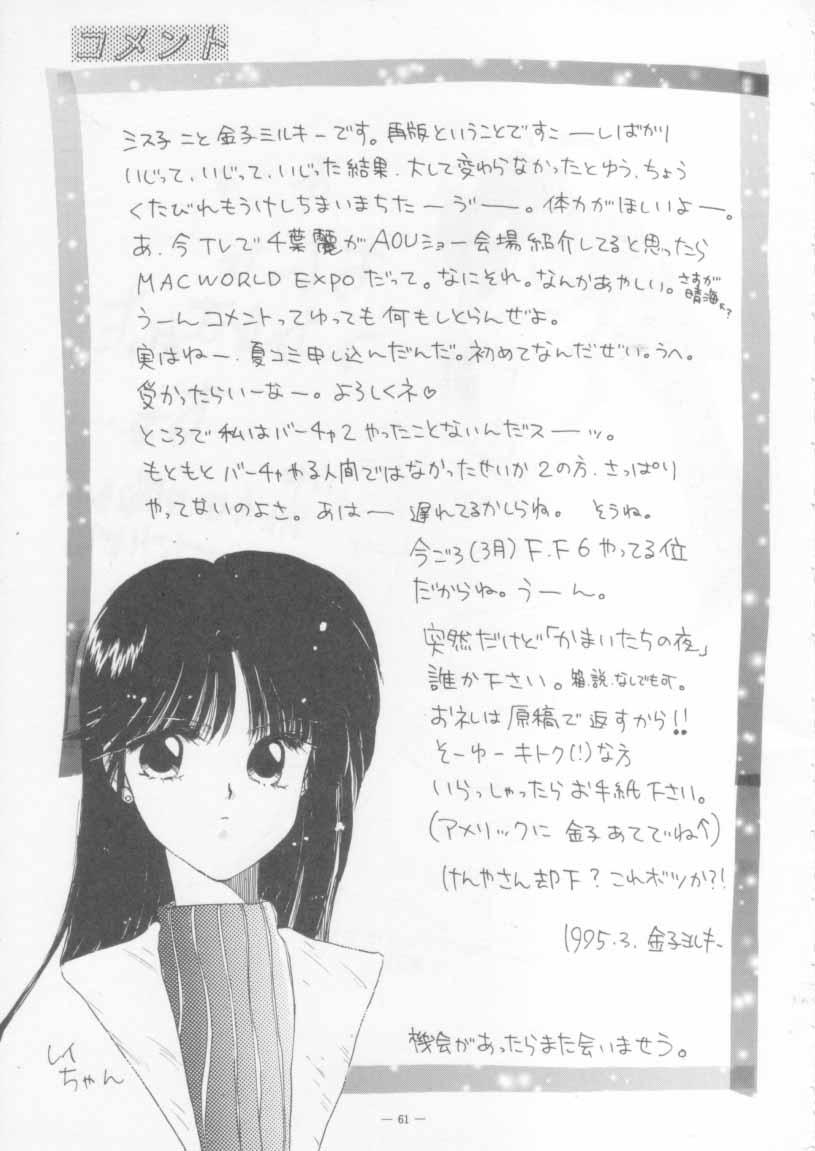 コメント
ミス子 こと 金子ミルキーです。再版ということですこーしばかり
いじって、いじって、いじった結果、大して変わらなかったとゆう、ちょう
くたびれもうけしちまいまちたーゔー。体力がほしいよー。
あ、今TVで千葉麗がAOUショー会場紹介してると思ったら
MACWORLD EXPOだって。なにそれ。なんかあやしい。さすが
晴海?
うーんコメントってゆっても何もしとらんぜよ。
実はねー、夏コミ申し込んだんだ。初めてなんだぜい。うへ。
受かったらいーなー。よろしくネ♡
ところで私はバーチャ2やったことないんだスーッ。
もともとバーチャやる人間ではなかったせいか2の方、さっぱり
やってないのよさ。あはー 遅れてるかしらね。 そうね。
今ごろ(3月)F.F6やってる位
だからね。うーん。
突然だけど「かまいたちの夜」
誰か下さい。箱、説、なしでも可。
お礼は原稿で返すから!!
そーゆーキトク(!)な方
いらっしゃったらお手紙下さい。
(アメリックに 金子あてでね↑)
けんやさん却下?これボツか?!
1995.3. 金子ミルキー
機会があったらまた会いませう。
レイ
ちゃん
— 61 —